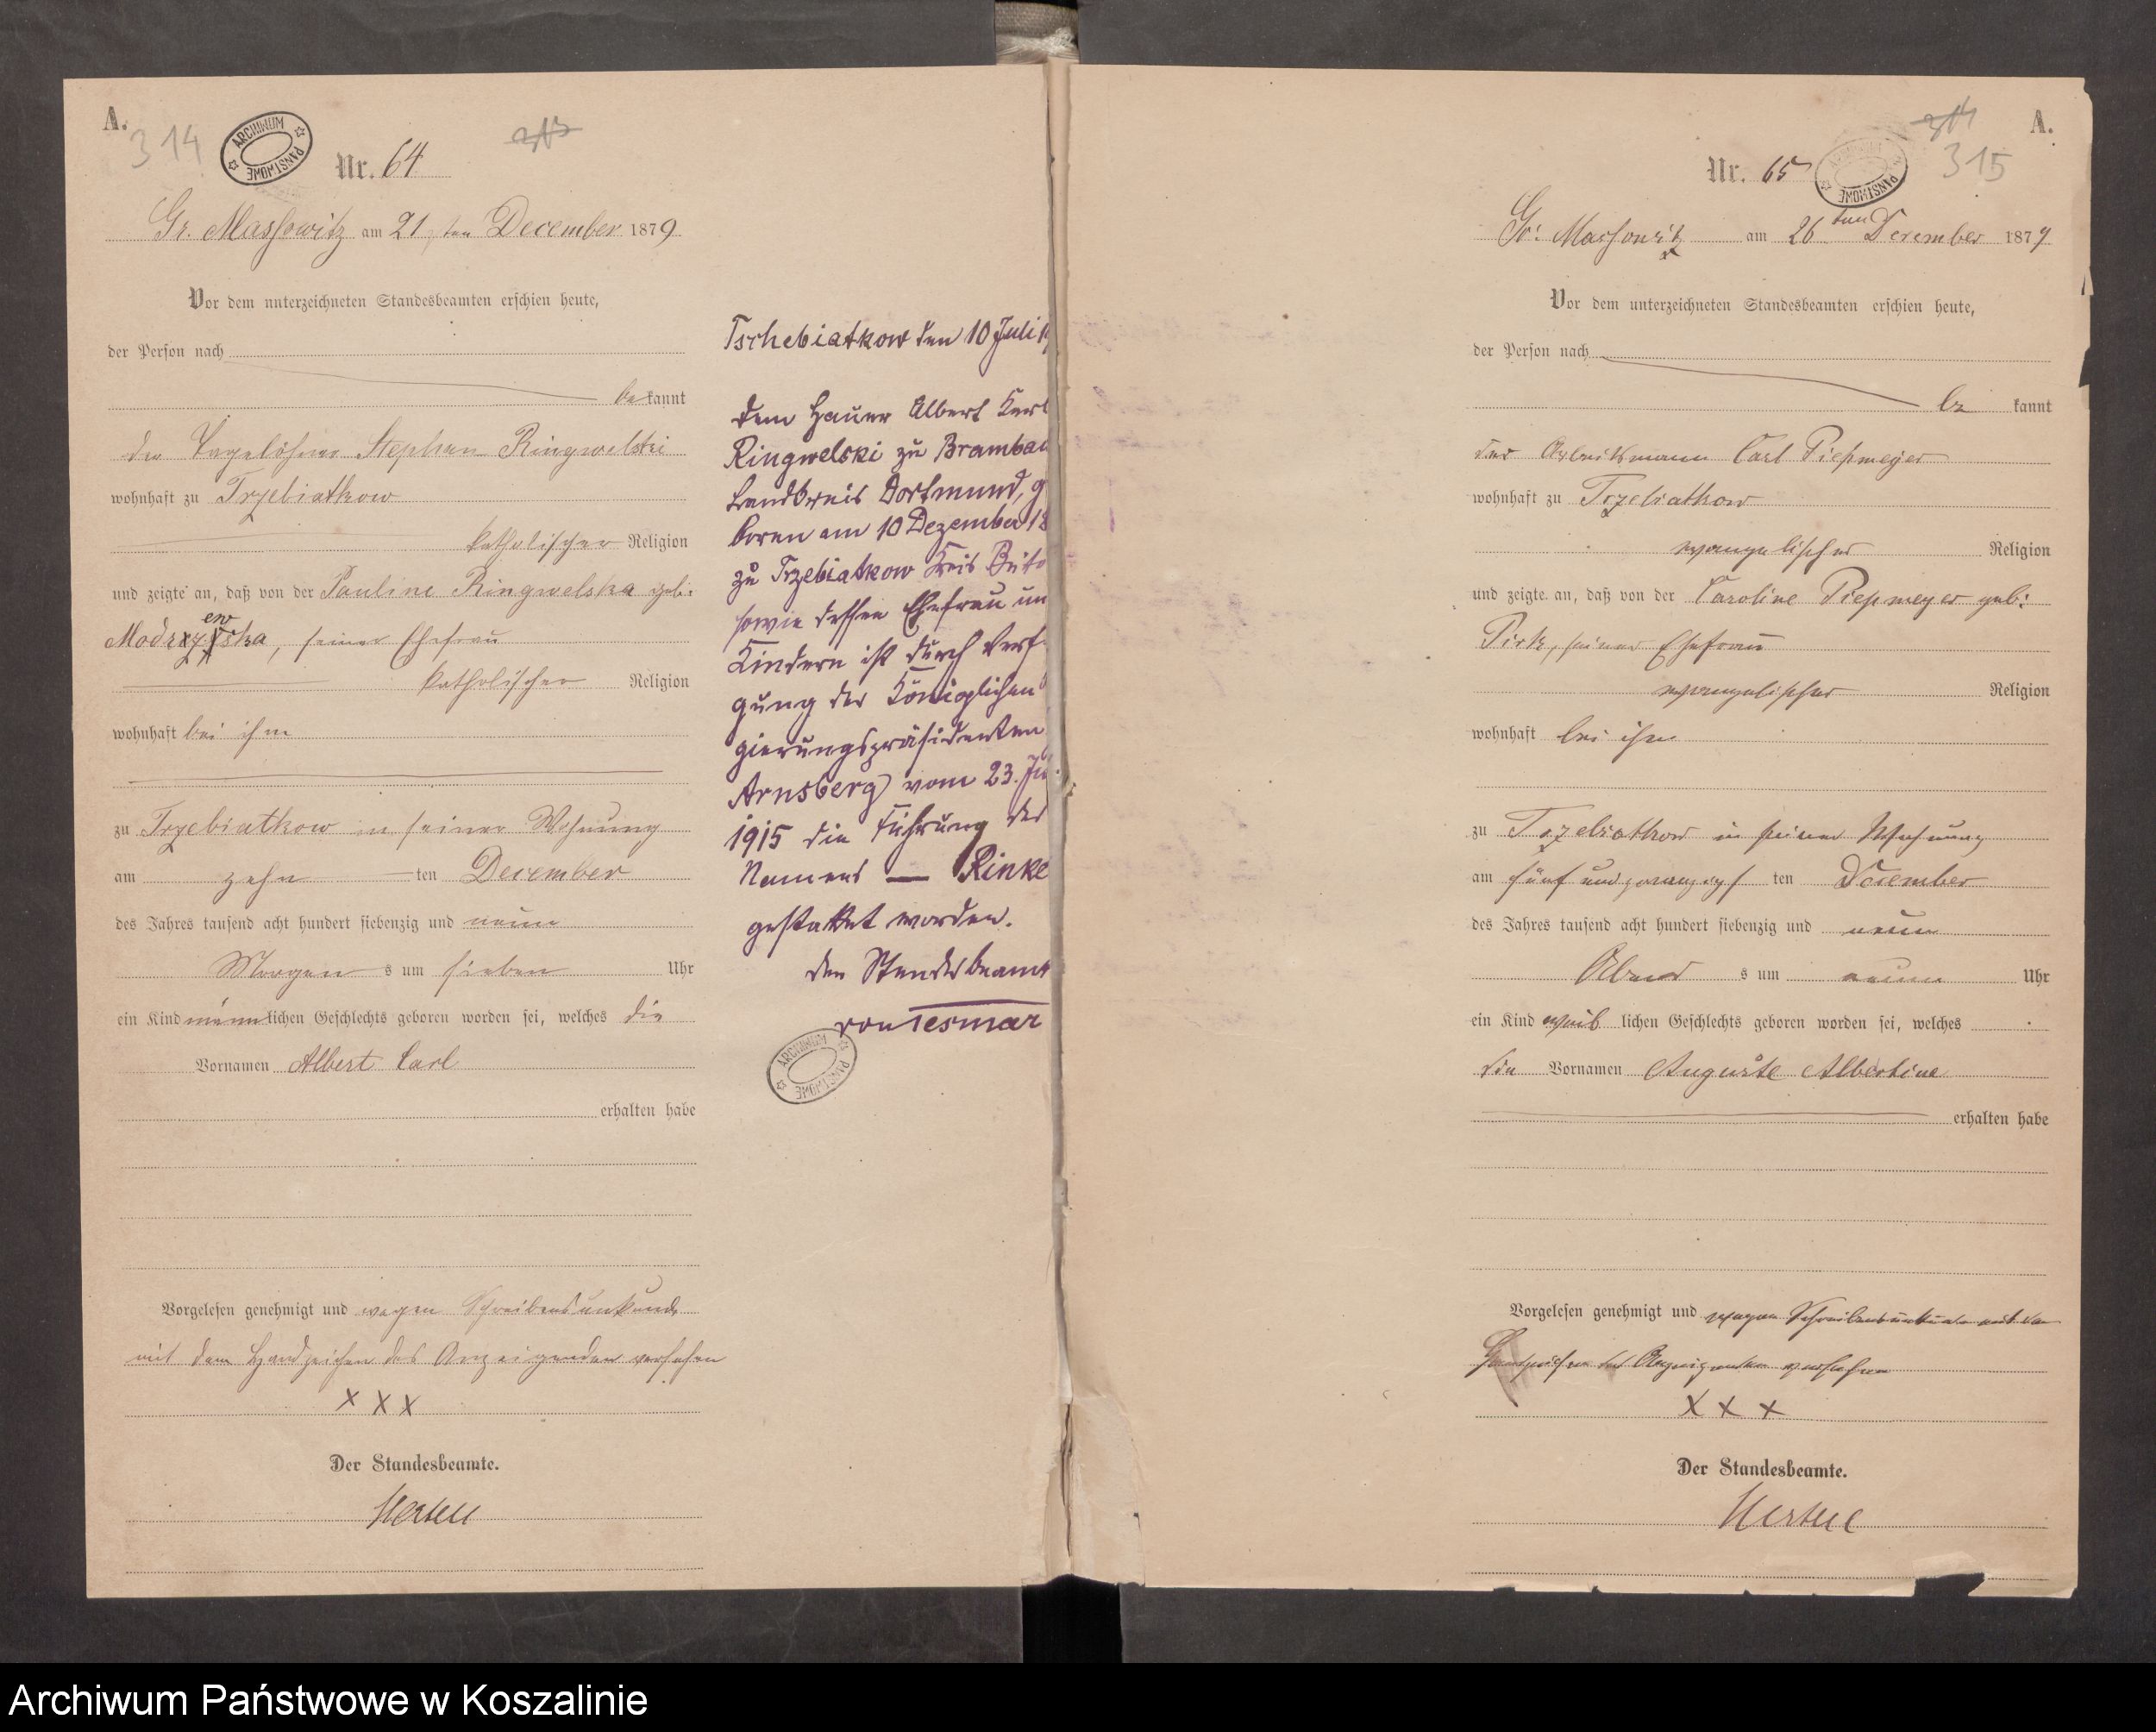 A.
314
ARCHIWUM PAŃSTWOWE
Nr. 64
Gr. Massowitz am 21 ten December 1879
Vor dem unterzeichneten Standesbeamten erschien heute,
der Person nach
bekannt
der Tagelöhner Stephan Ringwelski
wohnhaft zu Trzebiatkow
katholischer Religion
und zeigte an, daß von der Pauline Ringwelska geb:
seiner Ehefrau
katholischer Religion
wohnhaft bei ihm
zu Trzebiatkow in seiner Wohnung
am zehn ten December
des Jahres tausend acht hundert siebenzig und neun
Morgen s um sieben Uhr
ein Kind männlichen Geschlechts geboren worden sei, welches die
Vornamen Albert Carl
erhalten habe
Vorgelesen genehmigt und wegen Schreibensunkunde
mit dem Handzeichen des Anzeigenden versehen
X X X
Der Standesbeamte.
Tschebiatkow den 10 Juli
Dem Hauer Albert Karl
Ringwelski zu Brambau
Landkreis Dortmund, g
boren am 10 Dezember 18
zu Trzebiatkow Kreis Büto
sowie dessen Ehefrau un
Kindern ist durch Verf
gung des Königlichen
gierungspräsidenten
Arnsberg vom 23. Ju
1915 die Führung des
Namens — Rinke
gestattet worden.
Der Standesbeamt
von Tesmar
ARCHIWUM PAŃSTWOWE
A.
314
315
Nr. 65
ARCHIWUM PAŃSTWOWE
Gr: Massowitz am 26 ten December 1879
Vor dem unterzeichneten Standesbeamten erschien heute,
der Person nach
be kannt
der Arbeitsmann Carl Piepmeyer
wohnhaft zu Trzebiatkow
evangelischer Religion
und zeigte an, daß von der Caroline Piepmeyer geb:
seiner Ehefrau
evangelischer Religion
wohnhaft bei ihm
zu Trzebiatkow in seiner Wohnung
am fünf und zwanzigs ten December
des Jahres tausend acht hundert siebenzig und neun
Abend s um neun Uhr
ein Kind weib lichen Geschlechts geboren worden sei, welches
die Vornamen Auguste Albertine
erhalten habe
Vorgelesen genehmigt und wegen Schreibensunkunde mit dem
Handzeichen des Anzeigenden versehen
X X X
Der Standesbeamte.
Archiwum Państwowe w Koszalinie